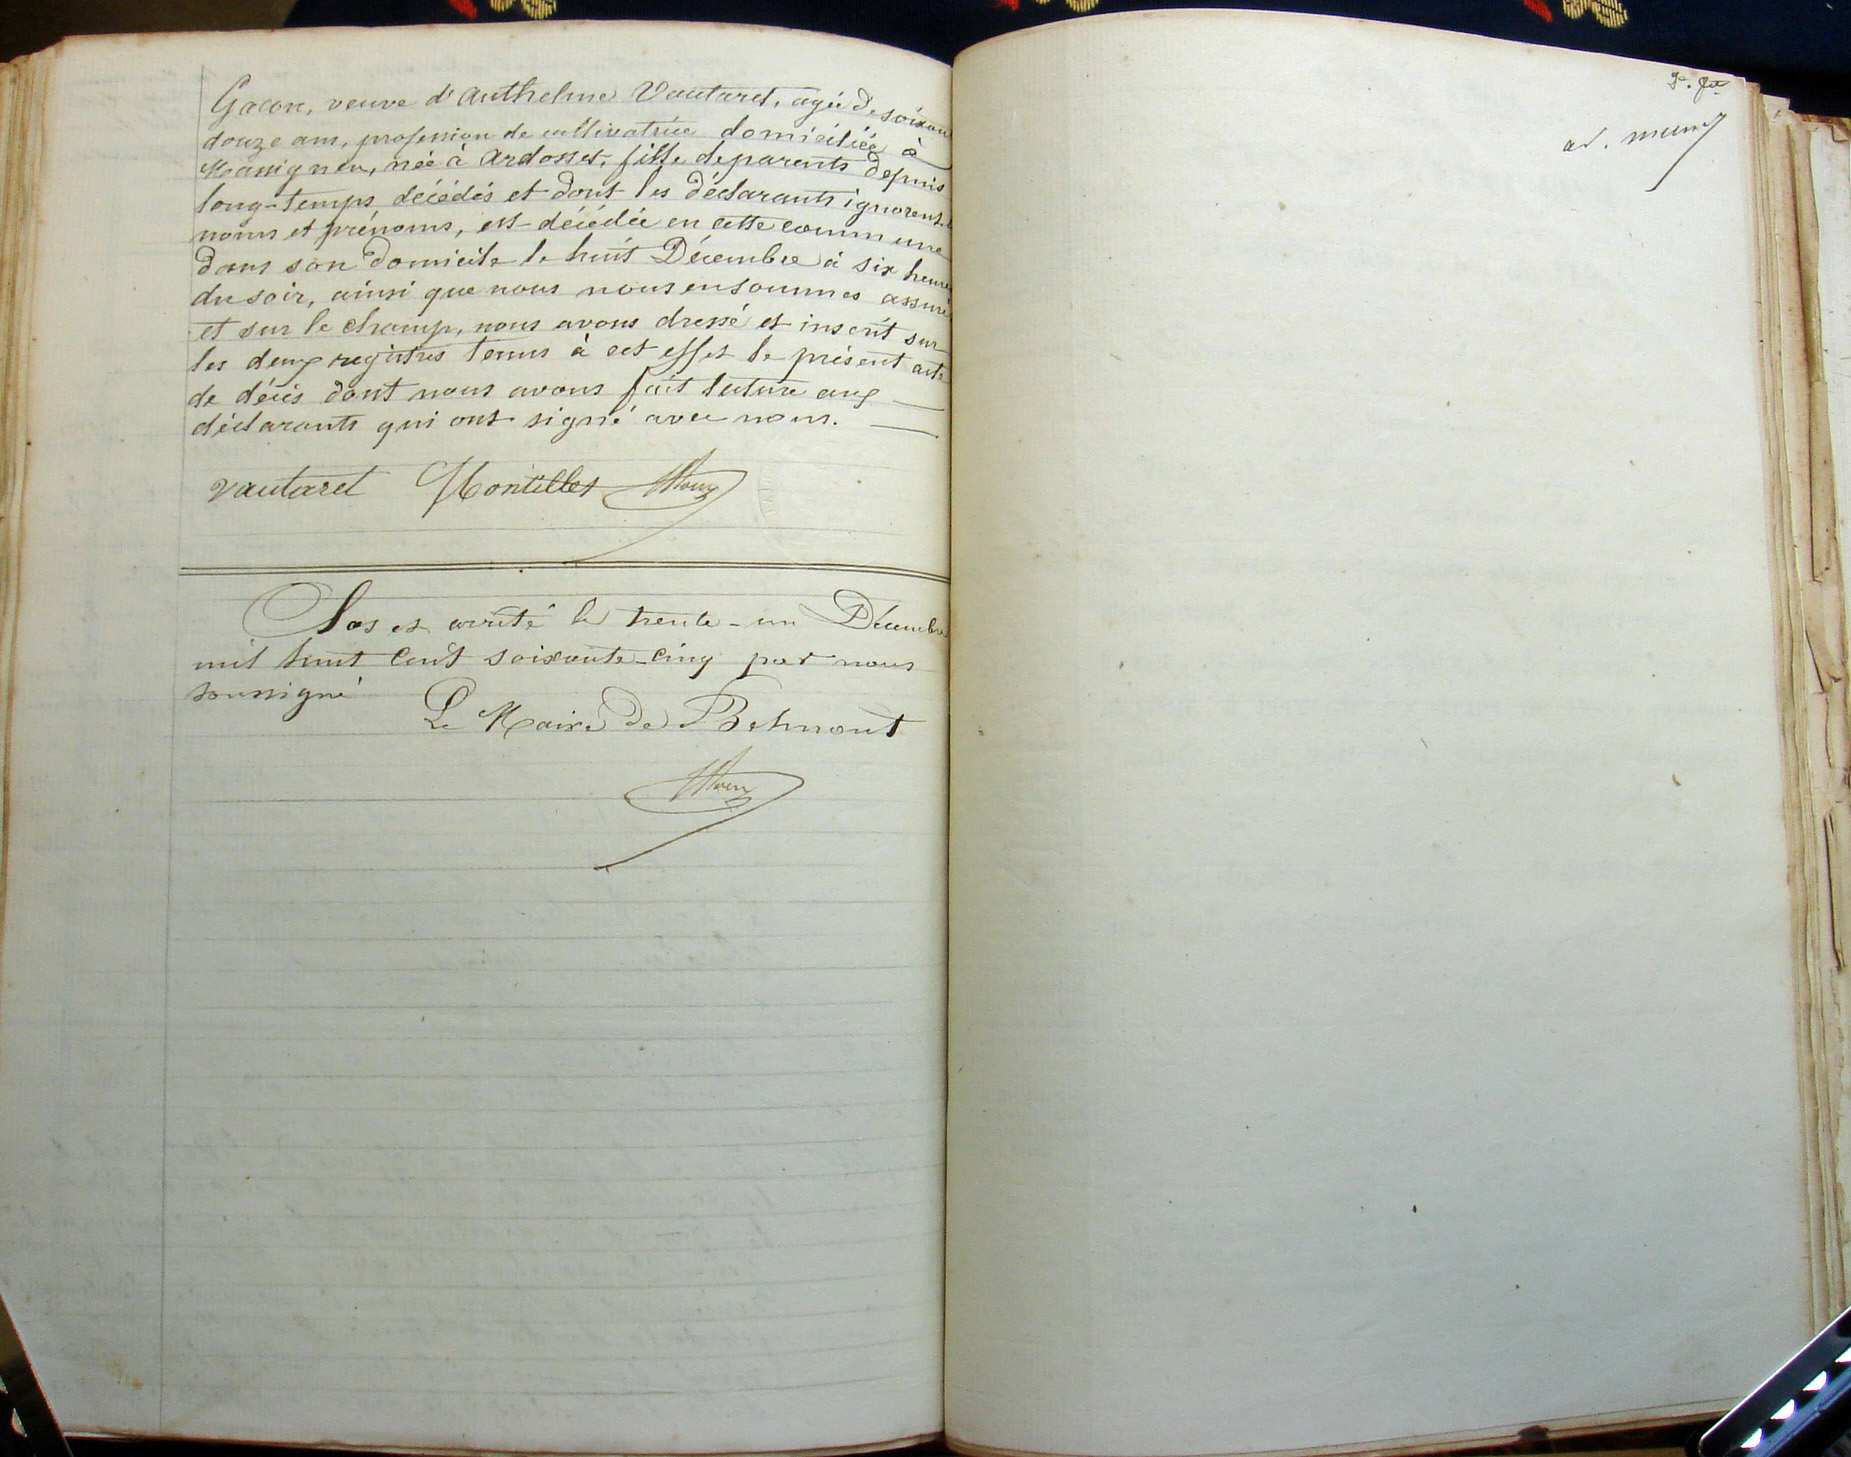 Gacon, veuve d'Anthelme Vautaret, agée de soixan
douze ans, profession de cultivatrice domiciliée à
Massignieu, née à Ardosset, fille de parents depuis
long-temps décédés et dont les déclarants ignorent
noms et prénoms, est décédée en cette commune
dans son domicile le huit Décembre à six heures
du soir, ainsi que nous nous en sommes assuré
et sur le champ, nous avons dressé et inscrit sur
les deux registres tenus à cet effet le présent acte
de décès dont nous avons fait lecture aux
déclarants qui ont signé avec nous.
Vautaret Montillet
Clos et arrêté le trente-un Décembre
mil huit cent soixante-cinq par nous
soussigné
Le Maire de Belmont